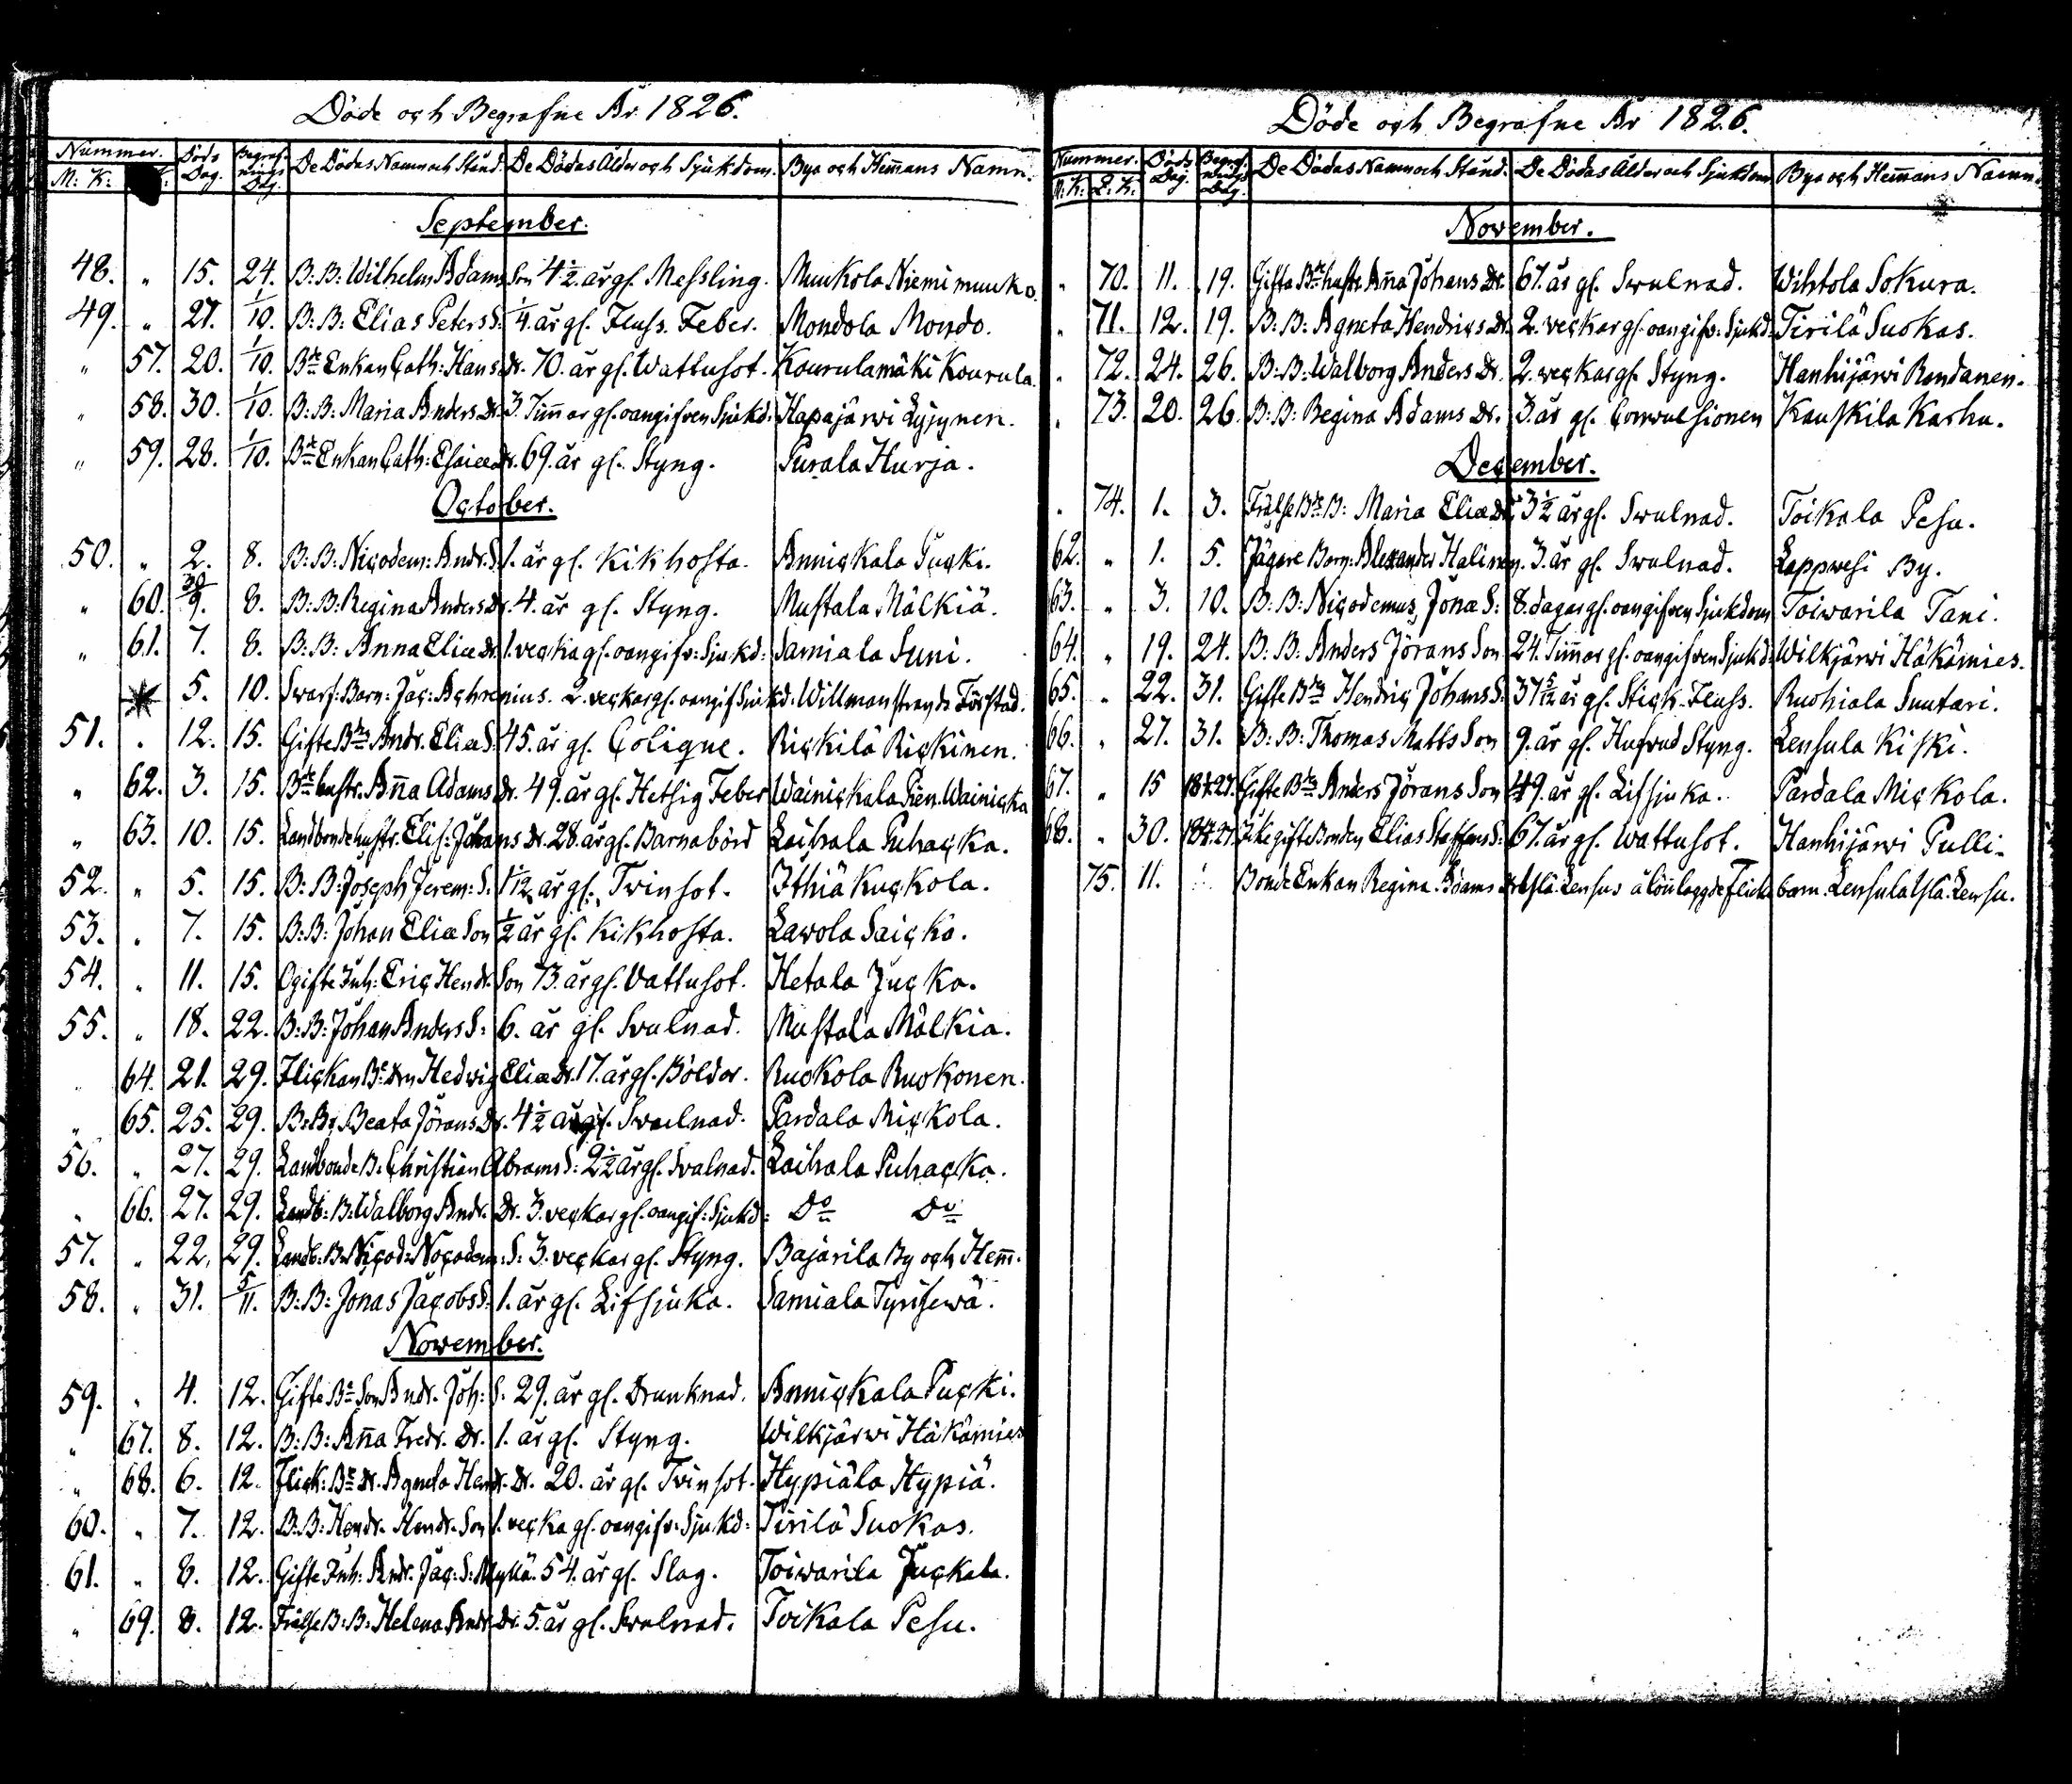 Döde och Begrafne År 1826.
Nummer. Döds Dag. Begrafnings Dag. De Dödas Namn och Stånd. De Dödas Ålder och Sjukdom. Bya och Hemans Namn.
M: K:
September.
48. " 15. 24. B: B: Wilhelm Adams Son 4 1/2 år gl. Messling. Muukola Niemi muuko.
49. " 27. 1/10. B: B: Elias Peters S: 1/4 år gl. Fluss. Feber. Mondola Mondo.
" 57. 20. 1/10. Bde Enkan Cath: Hans dr. 70. år gl. Wattusot. Kourulamäki Kourula.
" 58. 30. 1/10. B: B: Maria Anders Dr. 3. Timar gl. oangifven Sjukd: Hapajärwi Lyjynen.
" 59. 28. 1/10. Bde Enkan Cath: Esaiæ dr. 69. år gl. Styng. Purala Hurja.
October.
50. " 2. 8. B: B: Nicodem: Andr. S. 1. år gl. Kikhosta. Annickala Pucki.
" 60. 30/9. 8. B: B: Regina Anders Dr. 4. år gl. Styng. Mustala Mälkiä.
" 61. 7. 8. B: B: Anna Eliæ Dr. 1. vecka gl. oangifv: Sjukd: Samiala Suni.
5. 10. Swarf: Barn: Jac: Achrenius. 2. veckar gl. oangif Sjukd. Willmanstrands Förstad.
51. " 12. 15. Gifte Bdn Andr. Eliæ S: 45. år gl. Colique. Rickilä Rickinen.
" 62. 3. 15. Bde hustr. Ana Adams Dr. 49. år gl. Hetsig Feber Wainickala Pien. Wainicka
" 63. 10. 15. Landbonde hustr. Elis: Johans Dr. 28. år gl. Barnabörd Laihala Puhacka.
52. " 5. 15. B: B: Joseph Jerem: S. 1 1/12 år gl. Twinsot. Ithiä Kuckola.
53. " 7. 15. B: B: Johan Eliæ Son 1/2 år gl. Kikhosta. Lawola Saicka.
54. " 11. 15. Ogifte Inh: Eric Hendr. Son 73. år gl. Vattusot. Hetala Jucka.
55. " 18. 22. B: B: Johan Anders S: 6. år gl. Svulnad. Mustala Mälkia.
" 64. 21. 29. Flickan Be Drn Hedwig Eliæ Dr. 17. år gl. Böldor. Ruokola Ruokonen.
" 65. 25. 29. B: B: Beata Jörans Dr. 4 1/2 år gl. Svulnad. Pardala Mickola.
56. " 27. 29. Landbonde B: Christian Abrams S: 2 1/2 år gl. Svalnad. Laihala Puhacka.
" 66. 27. 29. Landb: B: Walborg Andr. Dr. 3. veckar gl. oangif: Sjukd: Do Do
57. " 22. 29. Landb: B: Nicod: Nocodem: S: 3. veckar gl. Styng. Bajarila By och Hem.
58. " 31. 5/11. B: B: Jonas Jacobs S: 1. år gl. Lifsjuka. Samiala Tynsewä.
November.
59. " 4. 12. Gifte Be Son Andr. Joh: S. 29. år gl. Drunknad. Annickala Pucki.
" 67. 8. 12. B: B: Ana Fredr. Dr. 1. år gl. Styng. Wilkjärwi Häkämies
" 68. 6. 12. Flick: Be Dr. Agneta Hendr. Dr. 20. år gl. Tvinsot. Hypiälä Hypiä.
60. " 7. 12. B: B: Hendr. Hendr. Son 1. vecka gl. oangifv: Sjukd: Tirilä Suokas.
61. " 8. 12. Gifte Inh: Andr. Jac: S: Myllä. 54. år gl. Slag. Toiwarila Juckala.
" 69. 8. 12. Frälse B: B: Helena Andr. Dr. 5. år gl. Svulnad. Toikala Pesu.
Döde och Begrafne År 1826.
Nummer. Döds Dag. Begrafnings Dag. De Dödas Namn och Stånd. De Dödas Ålder och Sjukdom Bya och Hemans Namn.
M. K: Q. K:
November.
" 70. 11. 19. Gifta Bde hustr. Ana Johans Dr. 67. år gl. Swulnad. Wihtola Sokura.
" 71. 12. 19. B: B: Agneta Hendrics Dr. 2. veckar gl. oangifv: Sjukd. Tirilä Suokas.
" 72. 24. 26. B: B: Walborg Anders Dr. 2. veckar gl. Styng. Hanhijärwi Rondanen.
" 73. 20. 26. B: B: Regina Adams Dr. 3. år gl. Convulsionen Kauskila Karhu.
December.
" 74. 1. 3. Frälse Bde B: Maria Eliæ Dr. 3 1/2 år gl. Swulnad. Toikala Pesu.
62. " 1. 5. Jägare Barn: Alexander Halinen. 3. år gl. Swulnad. Lappwesi By.
63. " 3. 10. B: B: Nicodemus Jonæ S: 8. dagar gl. oangifven Sjukdom Toiwarila Tani.
64. " 19. 24. B: B: Anders Jörans Son 24. Timar gl. oangifven Sjukd: Wilkjärwi Häkämies.
65. " 22. 31. Gifte Bdn Hendric Johans S: 37 5/12 år gl. Stick-Fluss. Ruohiala Suutari.
66. " 27. 31. B: B: Thomas Matts Son 9. år gl. Hufvud Styng. Lensula Kiski.
67. " 15 Gifte Bdn Anders Jörans Son 49. år gl. Lifsjuka. Pardala Mickola.
68. " 30. gifte Bonden Elias Staffans S: 67. år gl. Wattusot. Hanhijärwi Pulli-
75. 11. Bonde Enkan Regina Adams Lensus å lönn lagde Flicko barn. Lensula Ysla: Lensu.